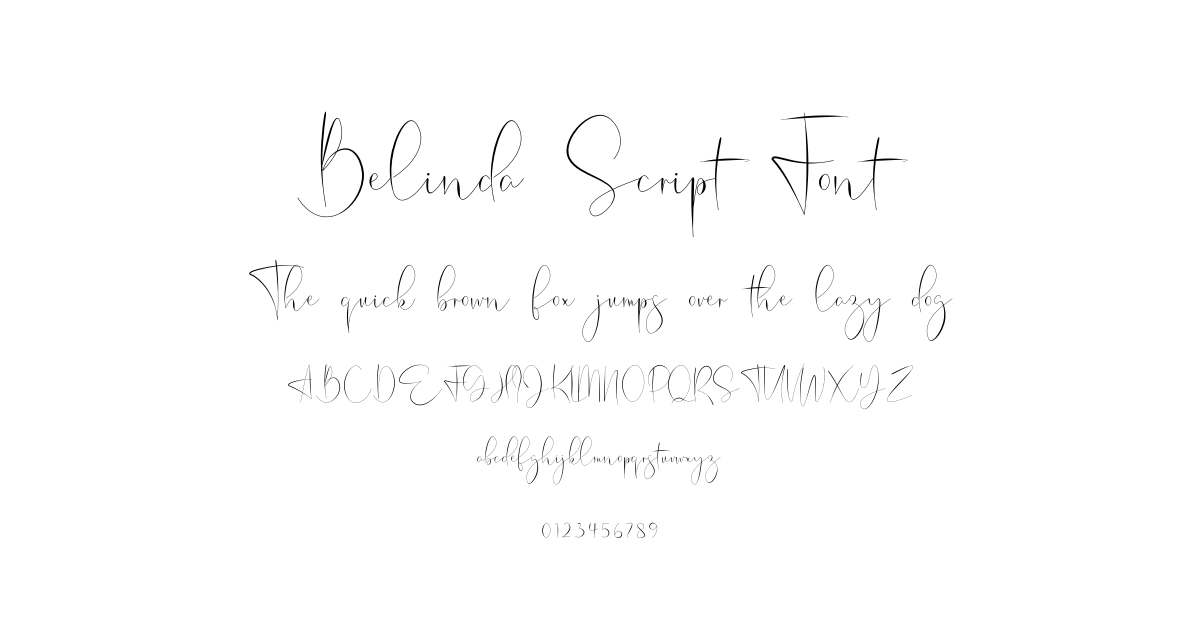 Belinda Script Font
The quick brown fox jumps over the lazy dog
ABCDEFGHIJKLMNOPQRSTUVWXYZ
abcdefghijklmnopqrstuvwxyz
0123456789